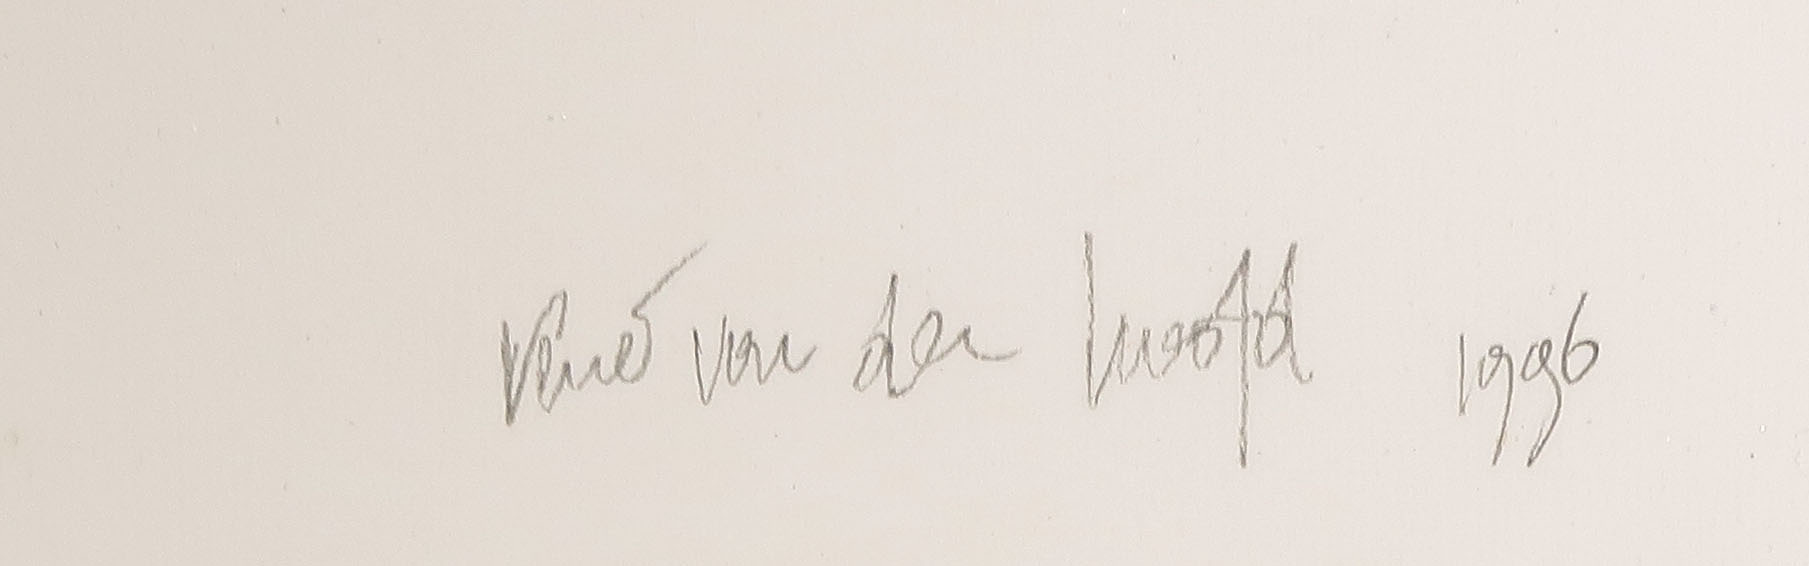 René van den 1996